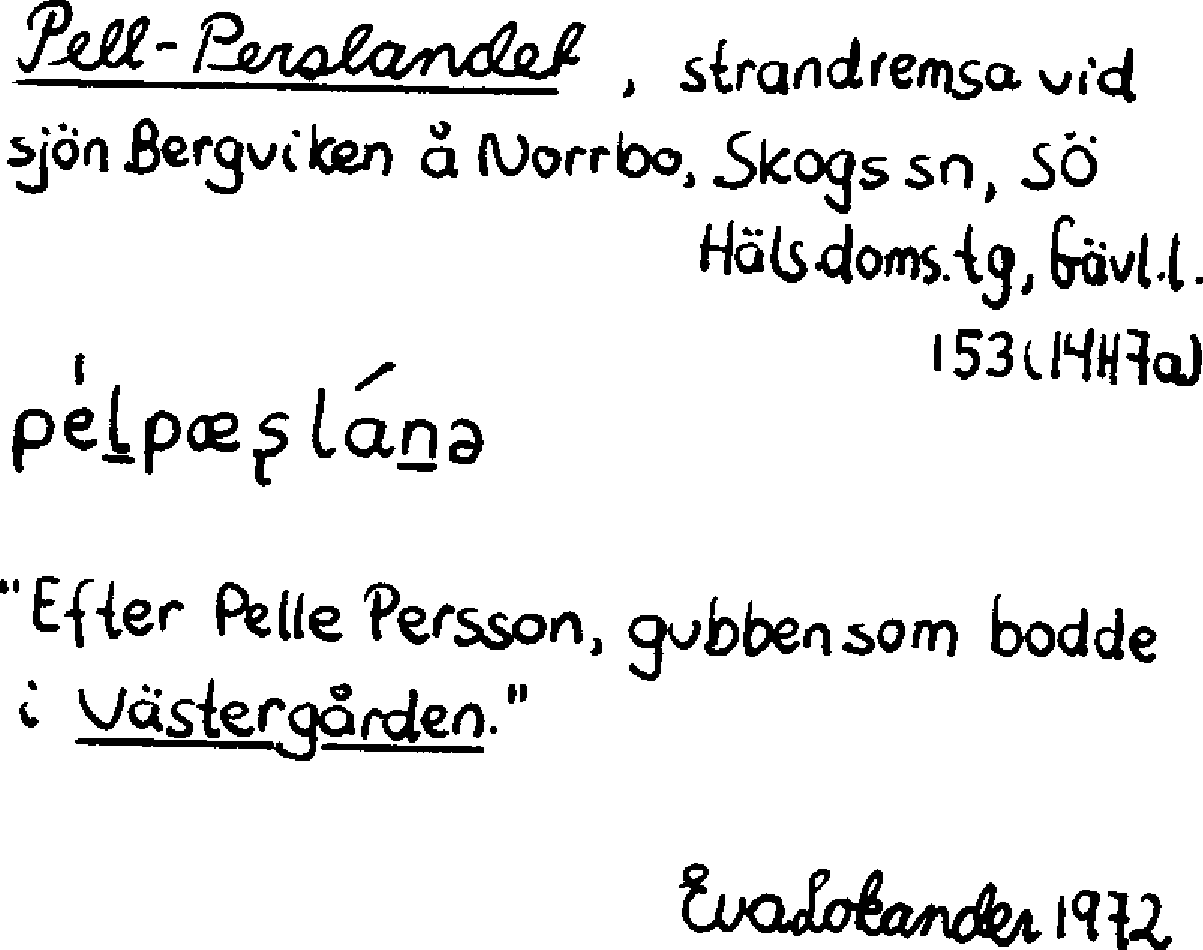 Pell-Perslandet, strandremsa vid
sjön Bergviken å Norrbo, Skogs sn, SÖ
Häls.doms.tg, Gävl.l.
153 (14H7a)
pe̍l̠pæʂlán̠ə
"Efter Pelle Persson, gubben som bodde
i Västergården."
Eva Lokander 1972